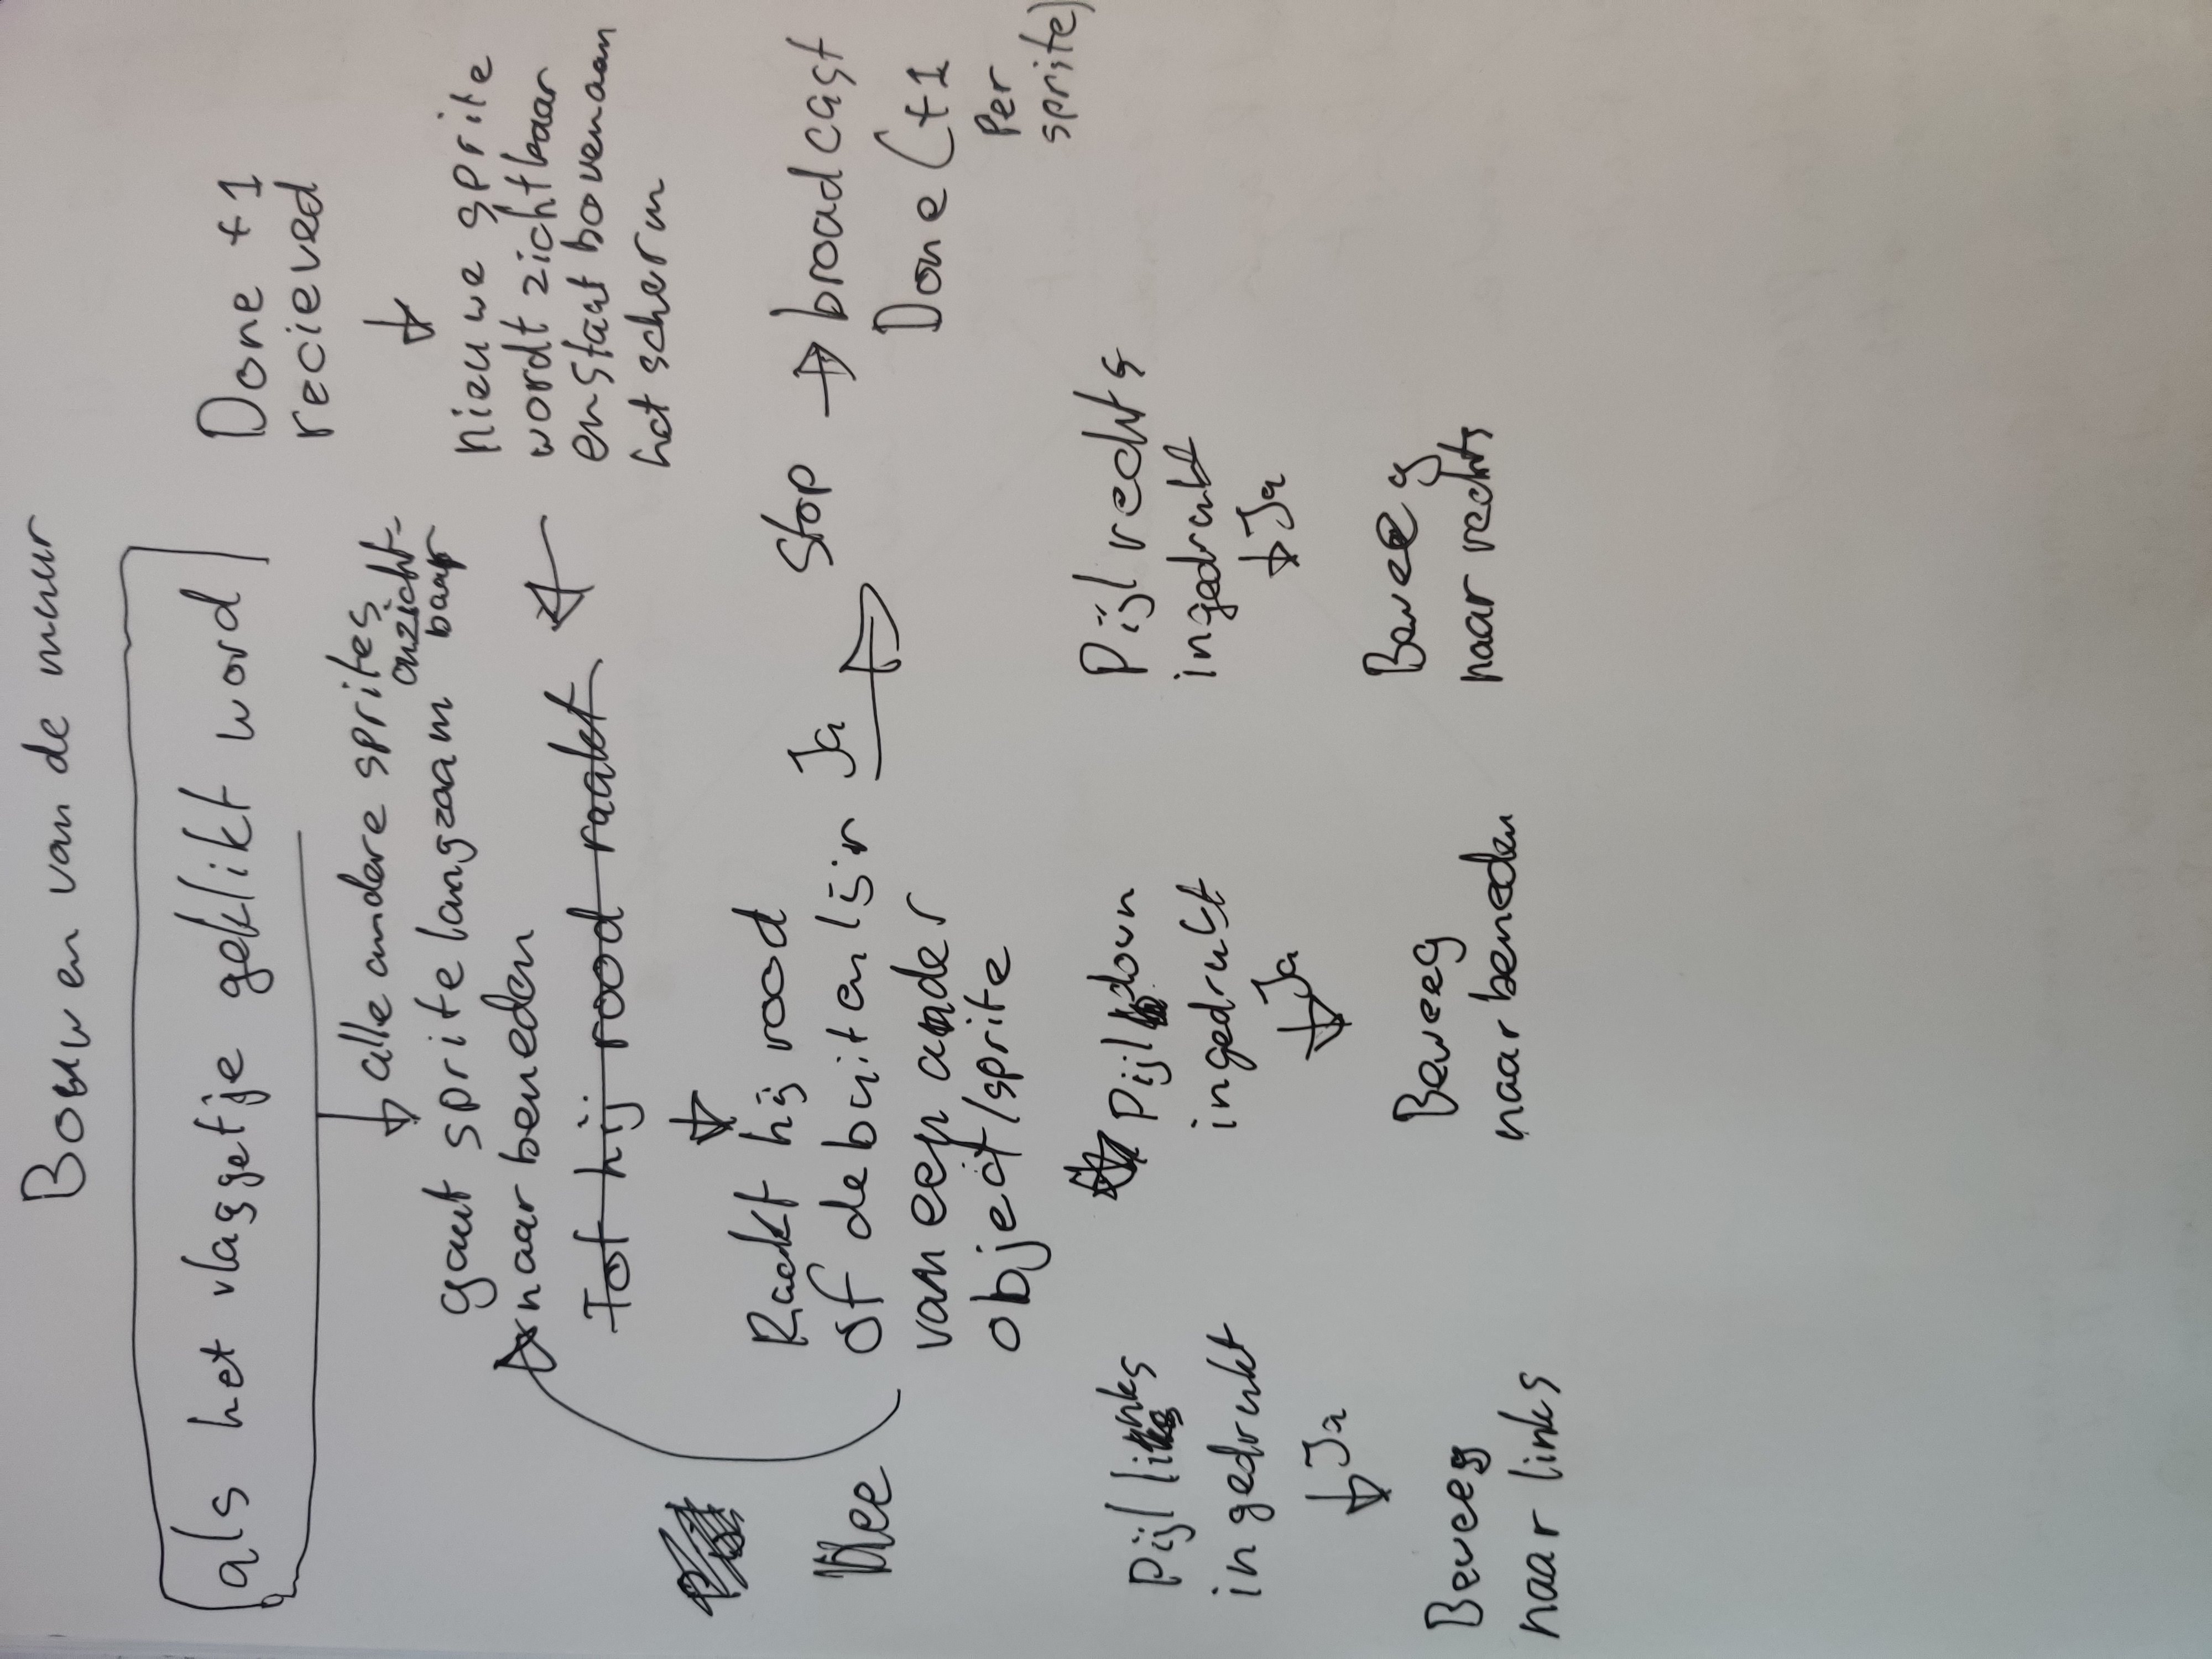 Bouwen van de muur
als het vlaggetje geklikt word
Done +1
recieved
alle andere sprites
onzicht-
baar
gaat sprite langzaam
naar beneden
Tot hij rood raakt
nieuwe sprite
wordt zichtbaar
en staat bovenaan
het scherm
Raakt hij rood
of de buitenlijn
van een ander
object/sprite
Nee
Ja
Stop → broadcast
Done (+1
Per
sprite)
Pijl links
ingedrukt
Ja
Beweeg
naar links
Pijl down
ingedrukt
Ja
Beweeg
naar beneden
Pijl rechts
ingedrukt
Ja
Beweeg
naar rechts